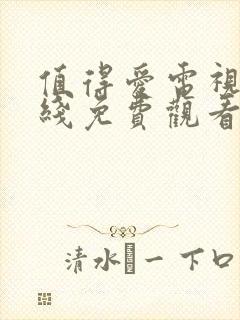 值得愛電視
綫免費觀看
清水一下口